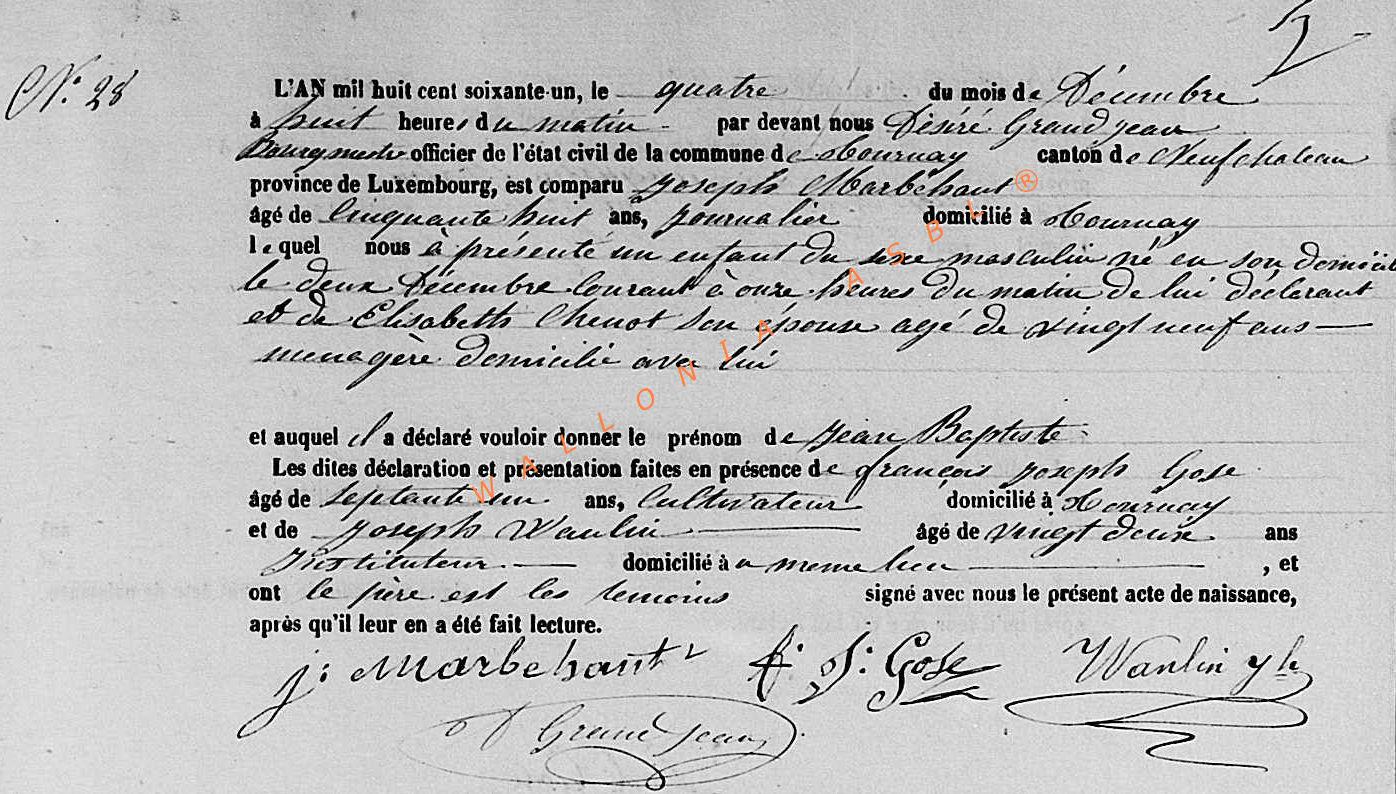 N° 28
L'AN mil huit cent soixante-un, le quatre du mois de Décembre
à huit heures du matin par devant nous Désiré Grandjean
Bourgmestre officier de l'état civil de la commune de Tournay canton de Neufchateau
province de Luxembourg, est comparu Joseph Marbehant
âgé de Cinquante huit ans, journalier domicilié à Tournay
lequel nous à présenté un enfant du sexe masculin né en son domicile
le deux Décembre Courant à onze heures du matin de lui déclarant
et de Elisabeth Chenot son épouse agé de vingt neuf ans
menagère domicilié avec lui
et auquel il a déclaré vouloir donner le prénom de Jean Baptiste
Les dites déclaration et présentation faites en présence de françois Joseph Gose
âgé de septante un ans, Cultivateur domicilié à Tournay
et de Joseph Wanlin âgé de vingt deux ans
Instituteur domicilié à u meme lieu , et
ont le père est les temoins signé avec nous le présent acte de naissance,
après qu'il leur en a été fait lecture.
j. Marbehant F. J. Gose Wanlin
D Grandjean
WALLONIA ASBL ®